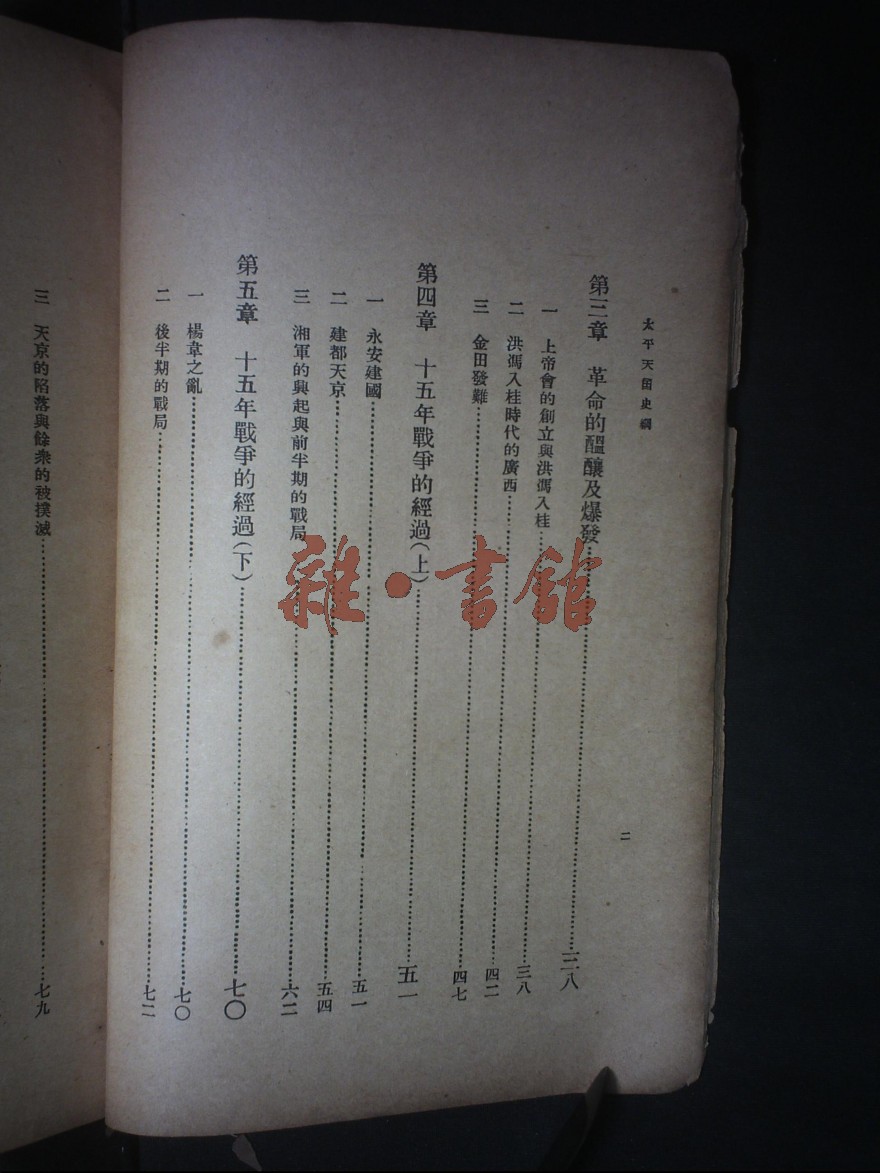 太平天國史綱
二
第三章 革命的醞釀及爆發……三八
一 上帝會的創立與洪馮入桂……三八
二 洪馮入桂時代的廣西……四二
三 金田發難……四七
第四章 十五年戰爭的經過(上)……五一
一 永安建國……五一
二 建都天京……五四
三 湘軍的興起與前半期的戰局……六二
第五章 十五年戰爭的經過(下)……七〇
一 楊韋之亂……七〇
二 後半期的戰局……七二
三 天京的陷落與餘衆的被撲滅……七九
雜·書館